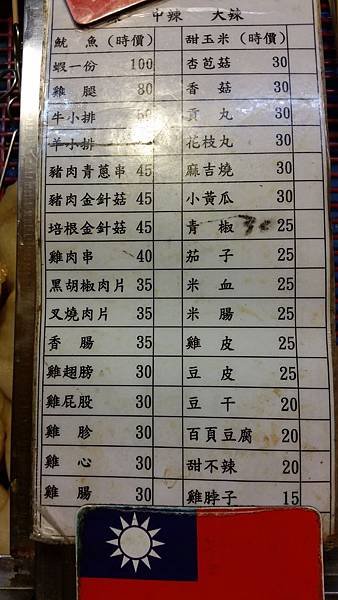 中辣 大辣
魷魚(時價) 甜玉米(時價)
蝦一份 100 杏苞菇 30
雞腿 80 香菇 30
牛小排 貢丸 30
羊小排 花枝丸 30
豬肉青蔥串 45 麻吉燒 30
豬肉金針菇 45 小黃瓜 30
培根金針菇 45 青椒 25
雞肉串 40 茄子 25
黑胡椒肉片 35 米血 25
叉燒肉片 35 米腸 25
香腸 35 雞皮 25
雞翅膀 30 豆皮 25
雞屁股 30 豆干 20
雞胗 30 百頁豆腐 20
雞心 30 甜不辣 20
雞腸 30 雞脖子 15